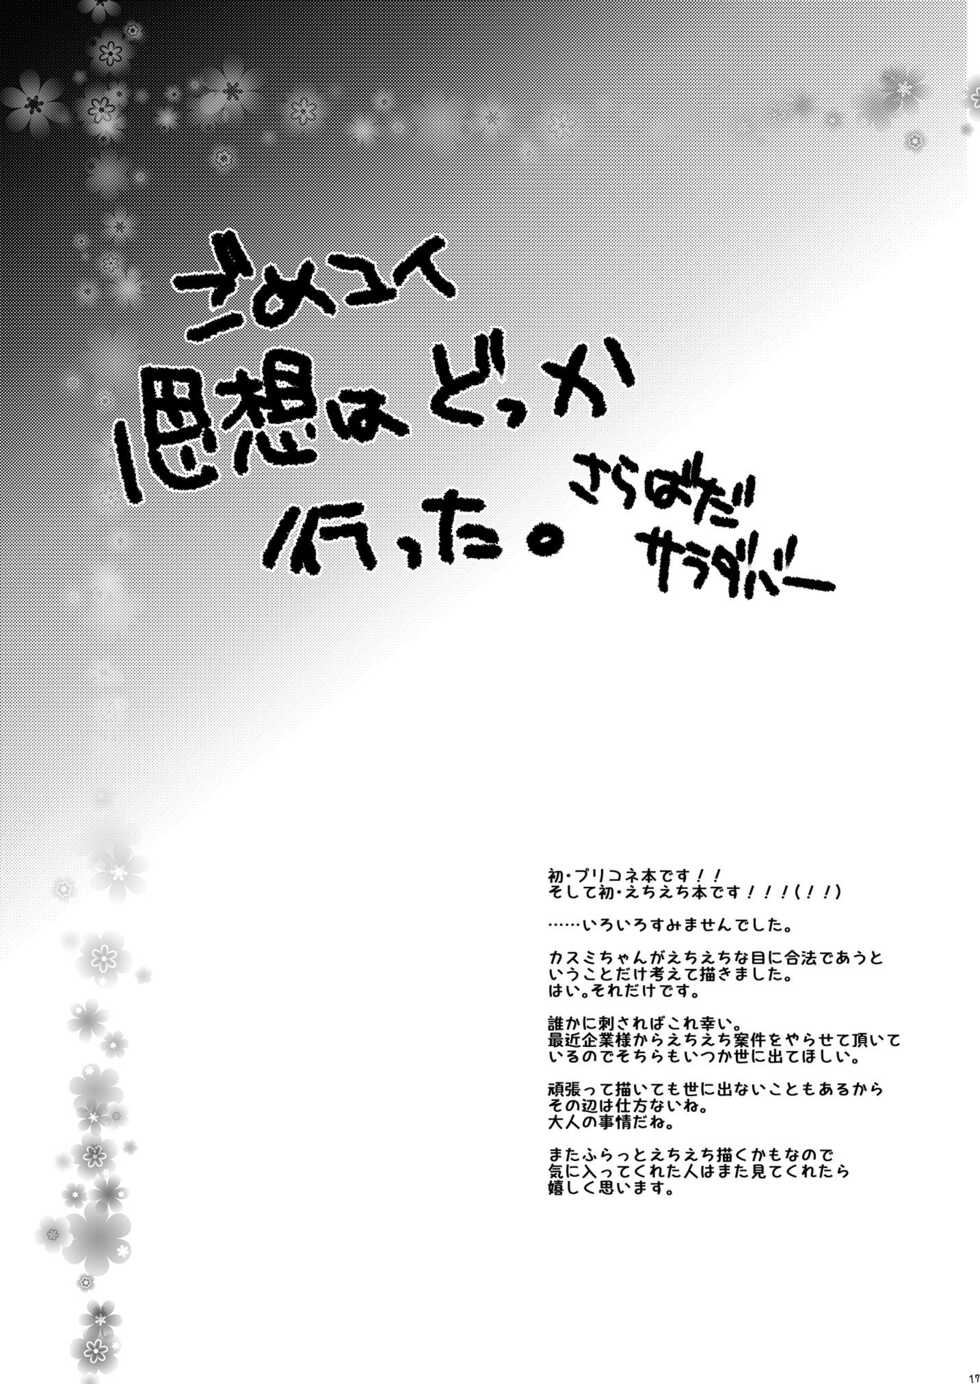 ごめユイ
思想はどっか
行った。
さらばだ
サラダバー
初・プリコネ本です！！
そして初・えちえち本です！！！(！！)
……いろいろすみませんでした。
カスミちゃんがえちえちな目に合法であうと
いうことだけ考えて描きました。
はい。それだけです。
誰かに刺さればこれ幸い。
最近企業様からえちえち案件をやらせて頂いて
いるのでそちらもいつか世に出てほしい。
頑張って描いても世に出ないこともあるから
その辺は仕方ないね。
大人の事情だね。
またふらっとえちえち描くかもなので
気に入ってくれた人はまた見てくれたら
嬉しく思います。